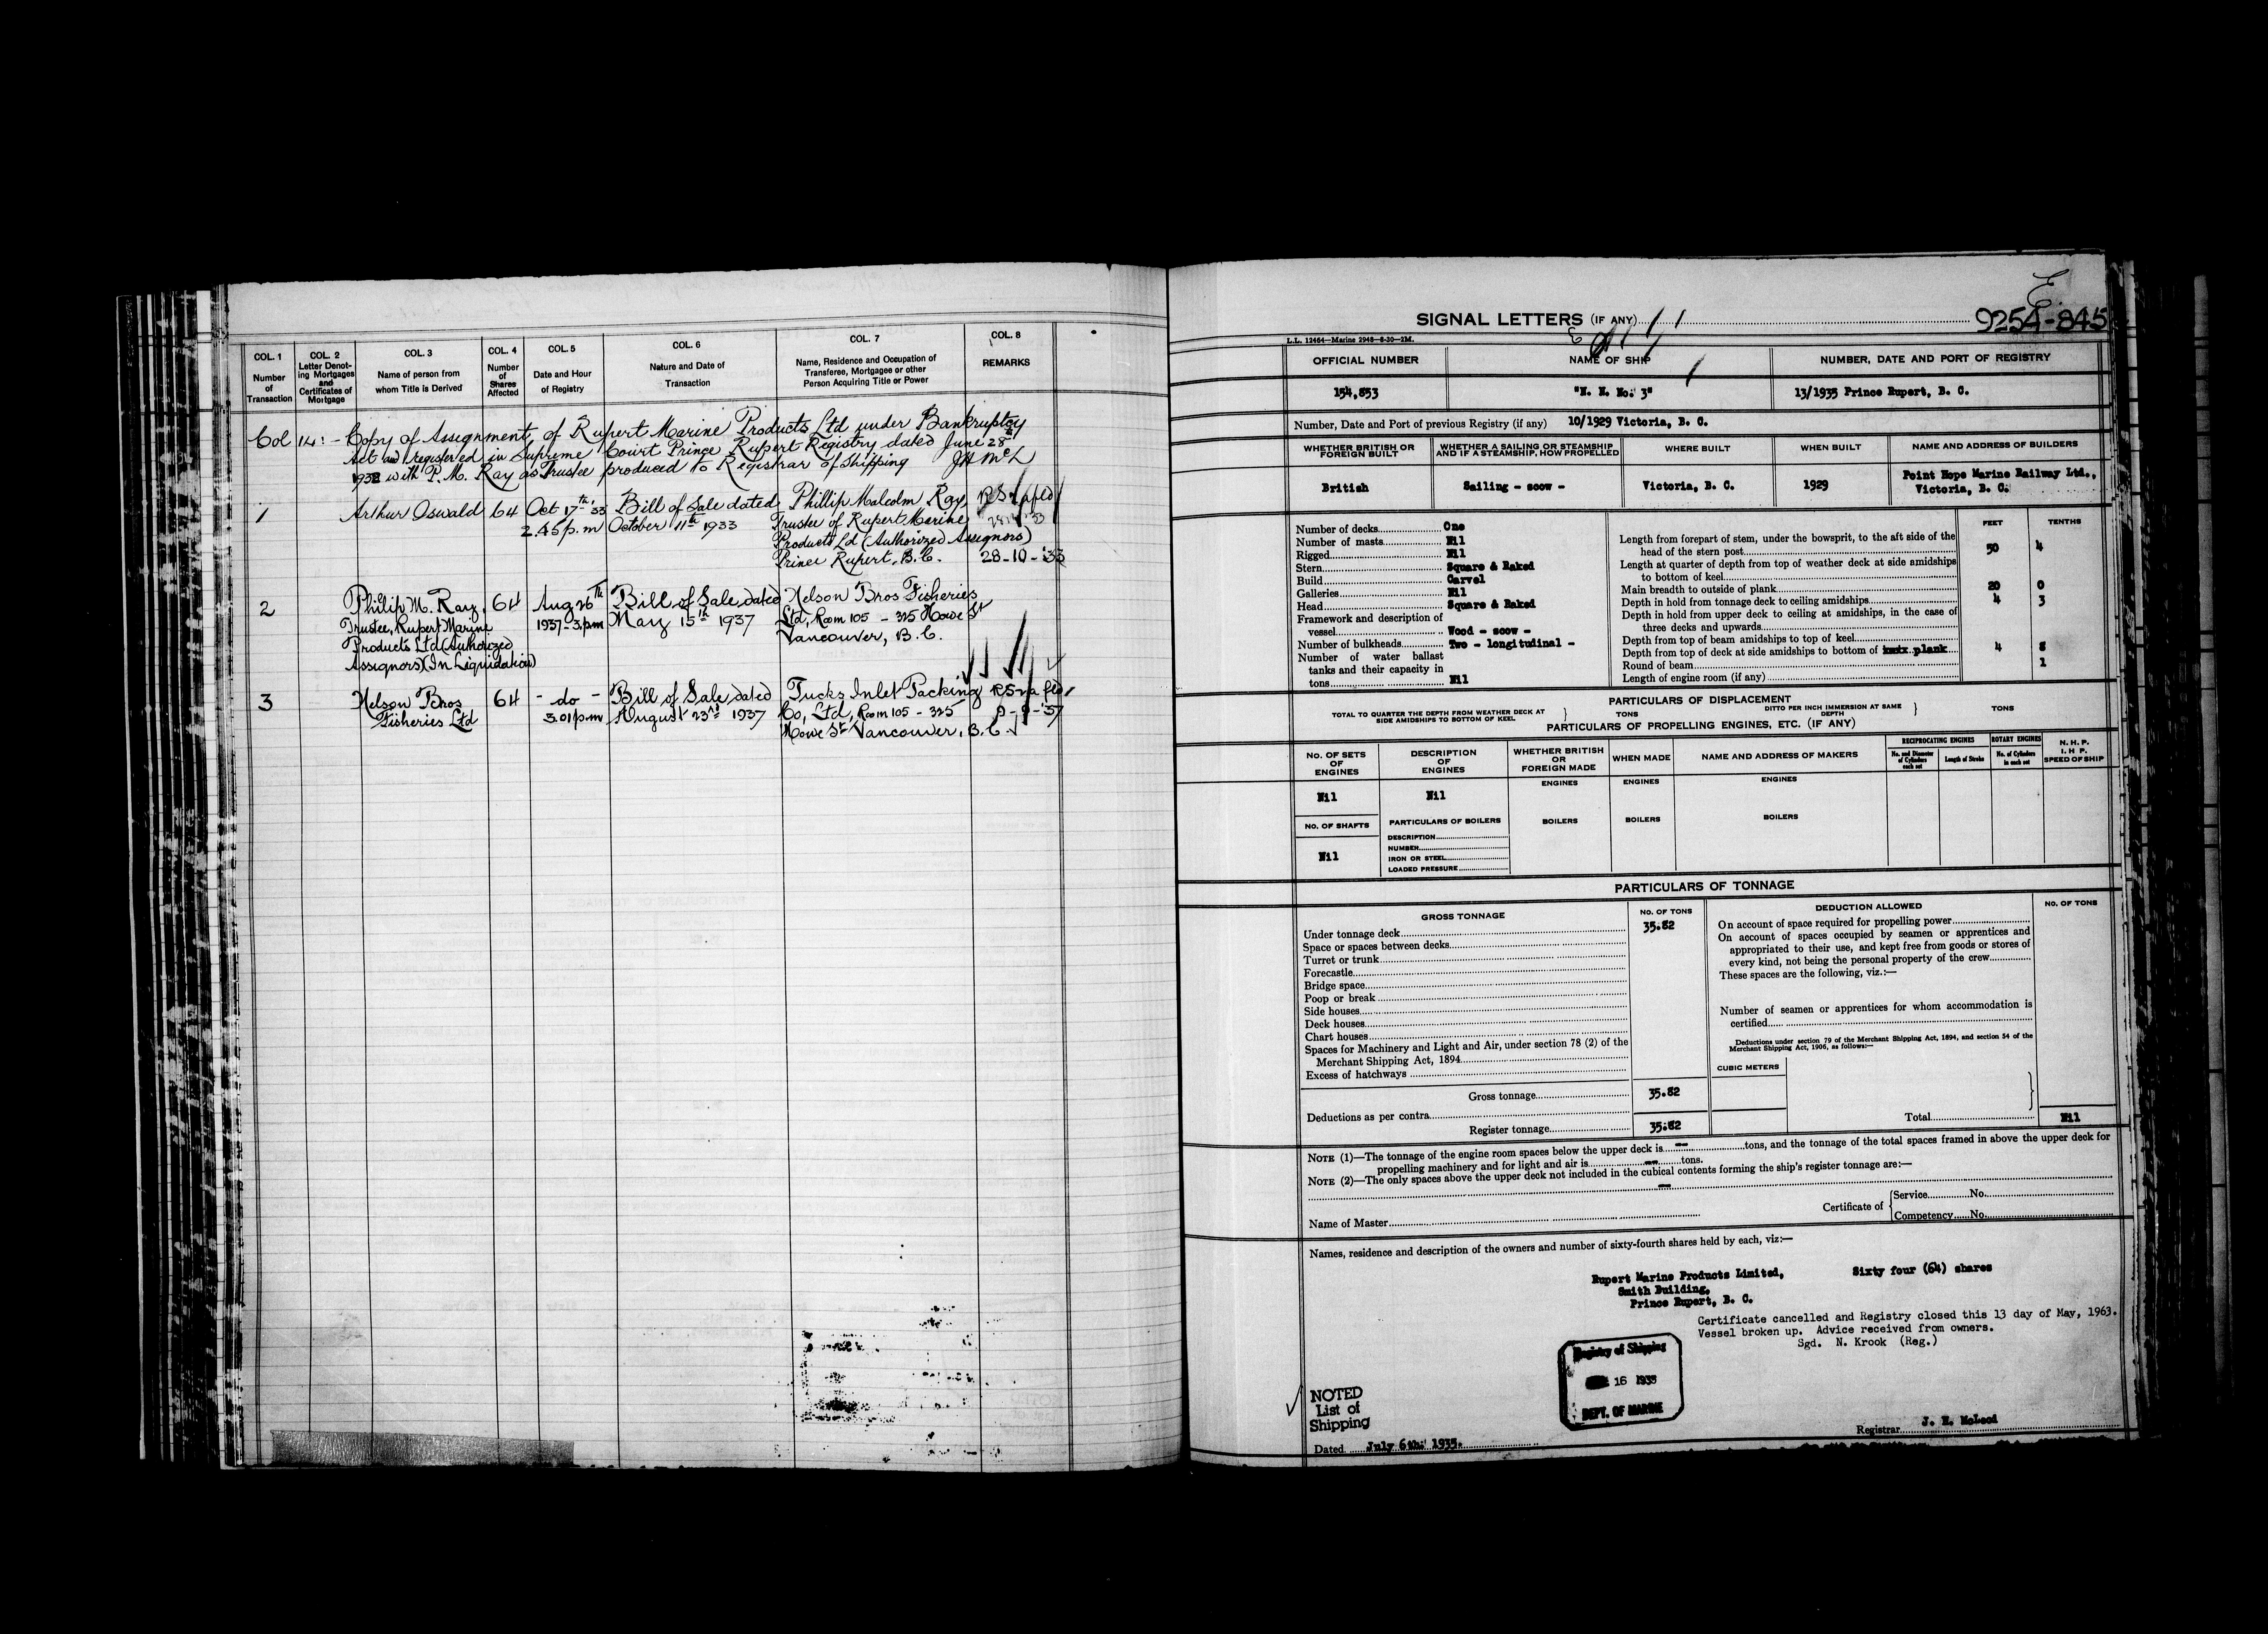 COL. 1
Number
of
Transaction
COL. 2
Letter Denot-
ing Mortgages
and
Certificates of
Mortgage
COL. 3
Name of person from
whom Title is Derived
COL. 4
Number
of
Shares
Affected
COL. 5
Date and Hour
of Registry
COL. 6
Nature and Date of
Transaction
COL. 7
Name, Residence and Occupation of
Transferee, Mortgagee or other
Person Acquiring Title or Power
COL. 8
REMARKS
Col 14:- Copy of Assignment, of Rupert Marine Products Ltd under Bankruptcy
Act and registered in Supreme Court Prince Rupert Registry dated June 28th
1932 with P. M. Ray as Trustee produced to Registrar of Shipping JH McL
1 Arthur Oswald 64 Oct 17th '33 Bill of Sale dated Phillip Malcolm Ray,
2.45 p.m October 11th 1933 Trustee of Rupert Marine
Products Ld (Authorized Assignors)
Prince Rupert, B.C. 28-10-'33
2 Philip M. Ray, 64 Aug 26th Bill of Sale, dated Nelson Bros Fisheries
Trustee, Rupert Marine 1937-3.pm May 15th 1937 Ltd, Room 105 - 325 Howe St
Products Ltd (Authorized Vancouver, B.C.
Assignors)(In Liquidation)
3 Nelson Bros 64 - do - Bill of Sale, dated Tucks Inlet Packing
Fisheries Ltd 3.01 p.m August 23rd 1937 Co, Ltd, Room 105 - 325 9-9-'37
Howe St Vancouver, B.C.
E
SIGNAL LETTERS (IF ANY) 9254-845
L.L. 12464—Marine 2948—8-30—2M.
OFFICIAL NUMBER
NAME OF SHIP
NUMBER, DATE AND PORT OF REGISTRY
154,853
"N. N. No. 3"
13/1935 Prince Rupert, B. C.
Number, Date and Port of previous Registry (if any) 10/1929 Victoria, B. C.
WHETHER BRITISH OR
FOREIGN BUILT
WHETHER A SAILING OR STEAMSHIP
AND IF A STEAMSHIP, HOW PROPELLED
WHERE BUILT
WHEN BUILT
NAME AND ADDRESS OF BUILDERS
British
Sailing - scow -
Victoria, B. C.
1929
Point Hope Marine Railway Ltd.,
Victoria, B. C.
Number of decks One
Number of masts Nil
Rigged Nil
Stern Square & Raked
Build Carvel
Galleries Nil
Head Square & Raked
Framework and description of
vessel Wood - scow -
Number of bulkheads Two - longitudinal -
Number of water ballast
tanks and their capacity in
tons Nil
FEET TENTHS
Length from forepart of stem, under the bowsprit, to the aft side of the
head of the stern post 50 4
Length at quarter of depth from top of weather deck at side amidships
to bottom of keel
Main breadth to outside of plank 20 0
Depth in hold from tonnage deck to ceiling amidships 4 3
Depth in hold from upper deck to ceiling at amidships, in the case of
three decks and upwards
Depth from top of beam amidships to top of keel
Depth from top of deck at side amidships to bottom of plank 4 8
Round of beam 1
Length of engine room (if any)
PARTICULARS OF DISPLACEMENT
TOTAL TO QUARTER THE DEPTH FROM WEATHER DECK AT
SIDE AMIDSHIPS TO BOTTOM OF KEEL
TONS
DITTO PER INCH IMMERSION AT SAME
DEPTH
TONS
PARTICULARS OF PROPELLING ENGINES, ETC. (IF ANY)
NO. OF SETS
OF
ENGINES
DESCRIPTION
OF
ENGINES
WHETHER BRITISH
OR
FOREIGN MADE
WHEN MADE
NAME AND ADDRESS OF MAKERS
RECIPROCATING ENGINES
No. and Diameter
of Cylinders
each set
Length of Stroke
ROTARY ENGINES
No. of Cylinders
in each set
N. H. P.
I. H. P.
SPEED OF SHIP
ENGINES
ENGINES
ENGINES
Nil
Nil
NO. OF SHAFTS
PARTICULARS OF BOILERS
BOILERS
BOILERS
BOILERS
Nil
DESCRIPTION
NUMBER
IRON OR STEEL
LOADED PRESSURE
PARTICULARS OF TONNAGE
GROSS TONNAGE
NO. OF TONS
DEDUCTION ALLOWED
NO. OF TONS
Under tonnage deck 35.82
Space or spaces between decks
Turret or trunk
Forecastle
Bridge space
Poop or break
Side houses
Deck houses
Chart houses
Spaces for Machinery and Light and Air, under section 78 (2) of the
Merchant Shipping Act, 1894
Excess of hatchways
Gross tonnage 35.82
Deductions as per contra
Register tonnage 35.82
On account of space required for propelling power
On account of spaces occupied by seamen or apprentices and
appropriated to their use, and kept free from goods or stores of
every kind, not being the personal property of the crew
These spaces are the following, viz.:—
Number of seamen or apprentices for whom accommodation is
certified
Deductions under section 79 of the Merchant Shipping Act, 1894, and section 54 of the
Merchant Shipping Act, 1906, as follows:—
CUBIC METERS
Total Nil
NOTE (1)—The tonnage of the engine room spaces below the upper deck is — tons, and the tonnage of the total spaces framed in above the upper deck for
propelling machinery and for light and air is — tons.
NOTE (2)—The only spaces above the upper deck not included in the cubical contents forming the ship's register tonnage are:—
—
Name of Master
Certificate of
Service No.
Competency No.
Names, residence and description of the owners and number of sixty-fourth shares held by each, viz:—
Rupert Marine Products Limited, Sixty four (64) shares
Smith Building,
Prince Rupert, B. C.
Certificate cancelled and Registry closed this 13 day of May, 1963.
Vessel broken up. Advice received from owners.
Sgd. N. Krook (Reg.)
Registry of Shipping
16 1935
DEPT. OF MARINE
NOTED
List of
Shipping
Dated July 6th. 1935.
Registrar J. H. McLeod